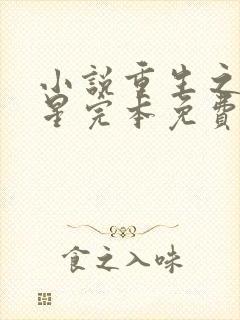 小說重生之
星完本免費
食之入味